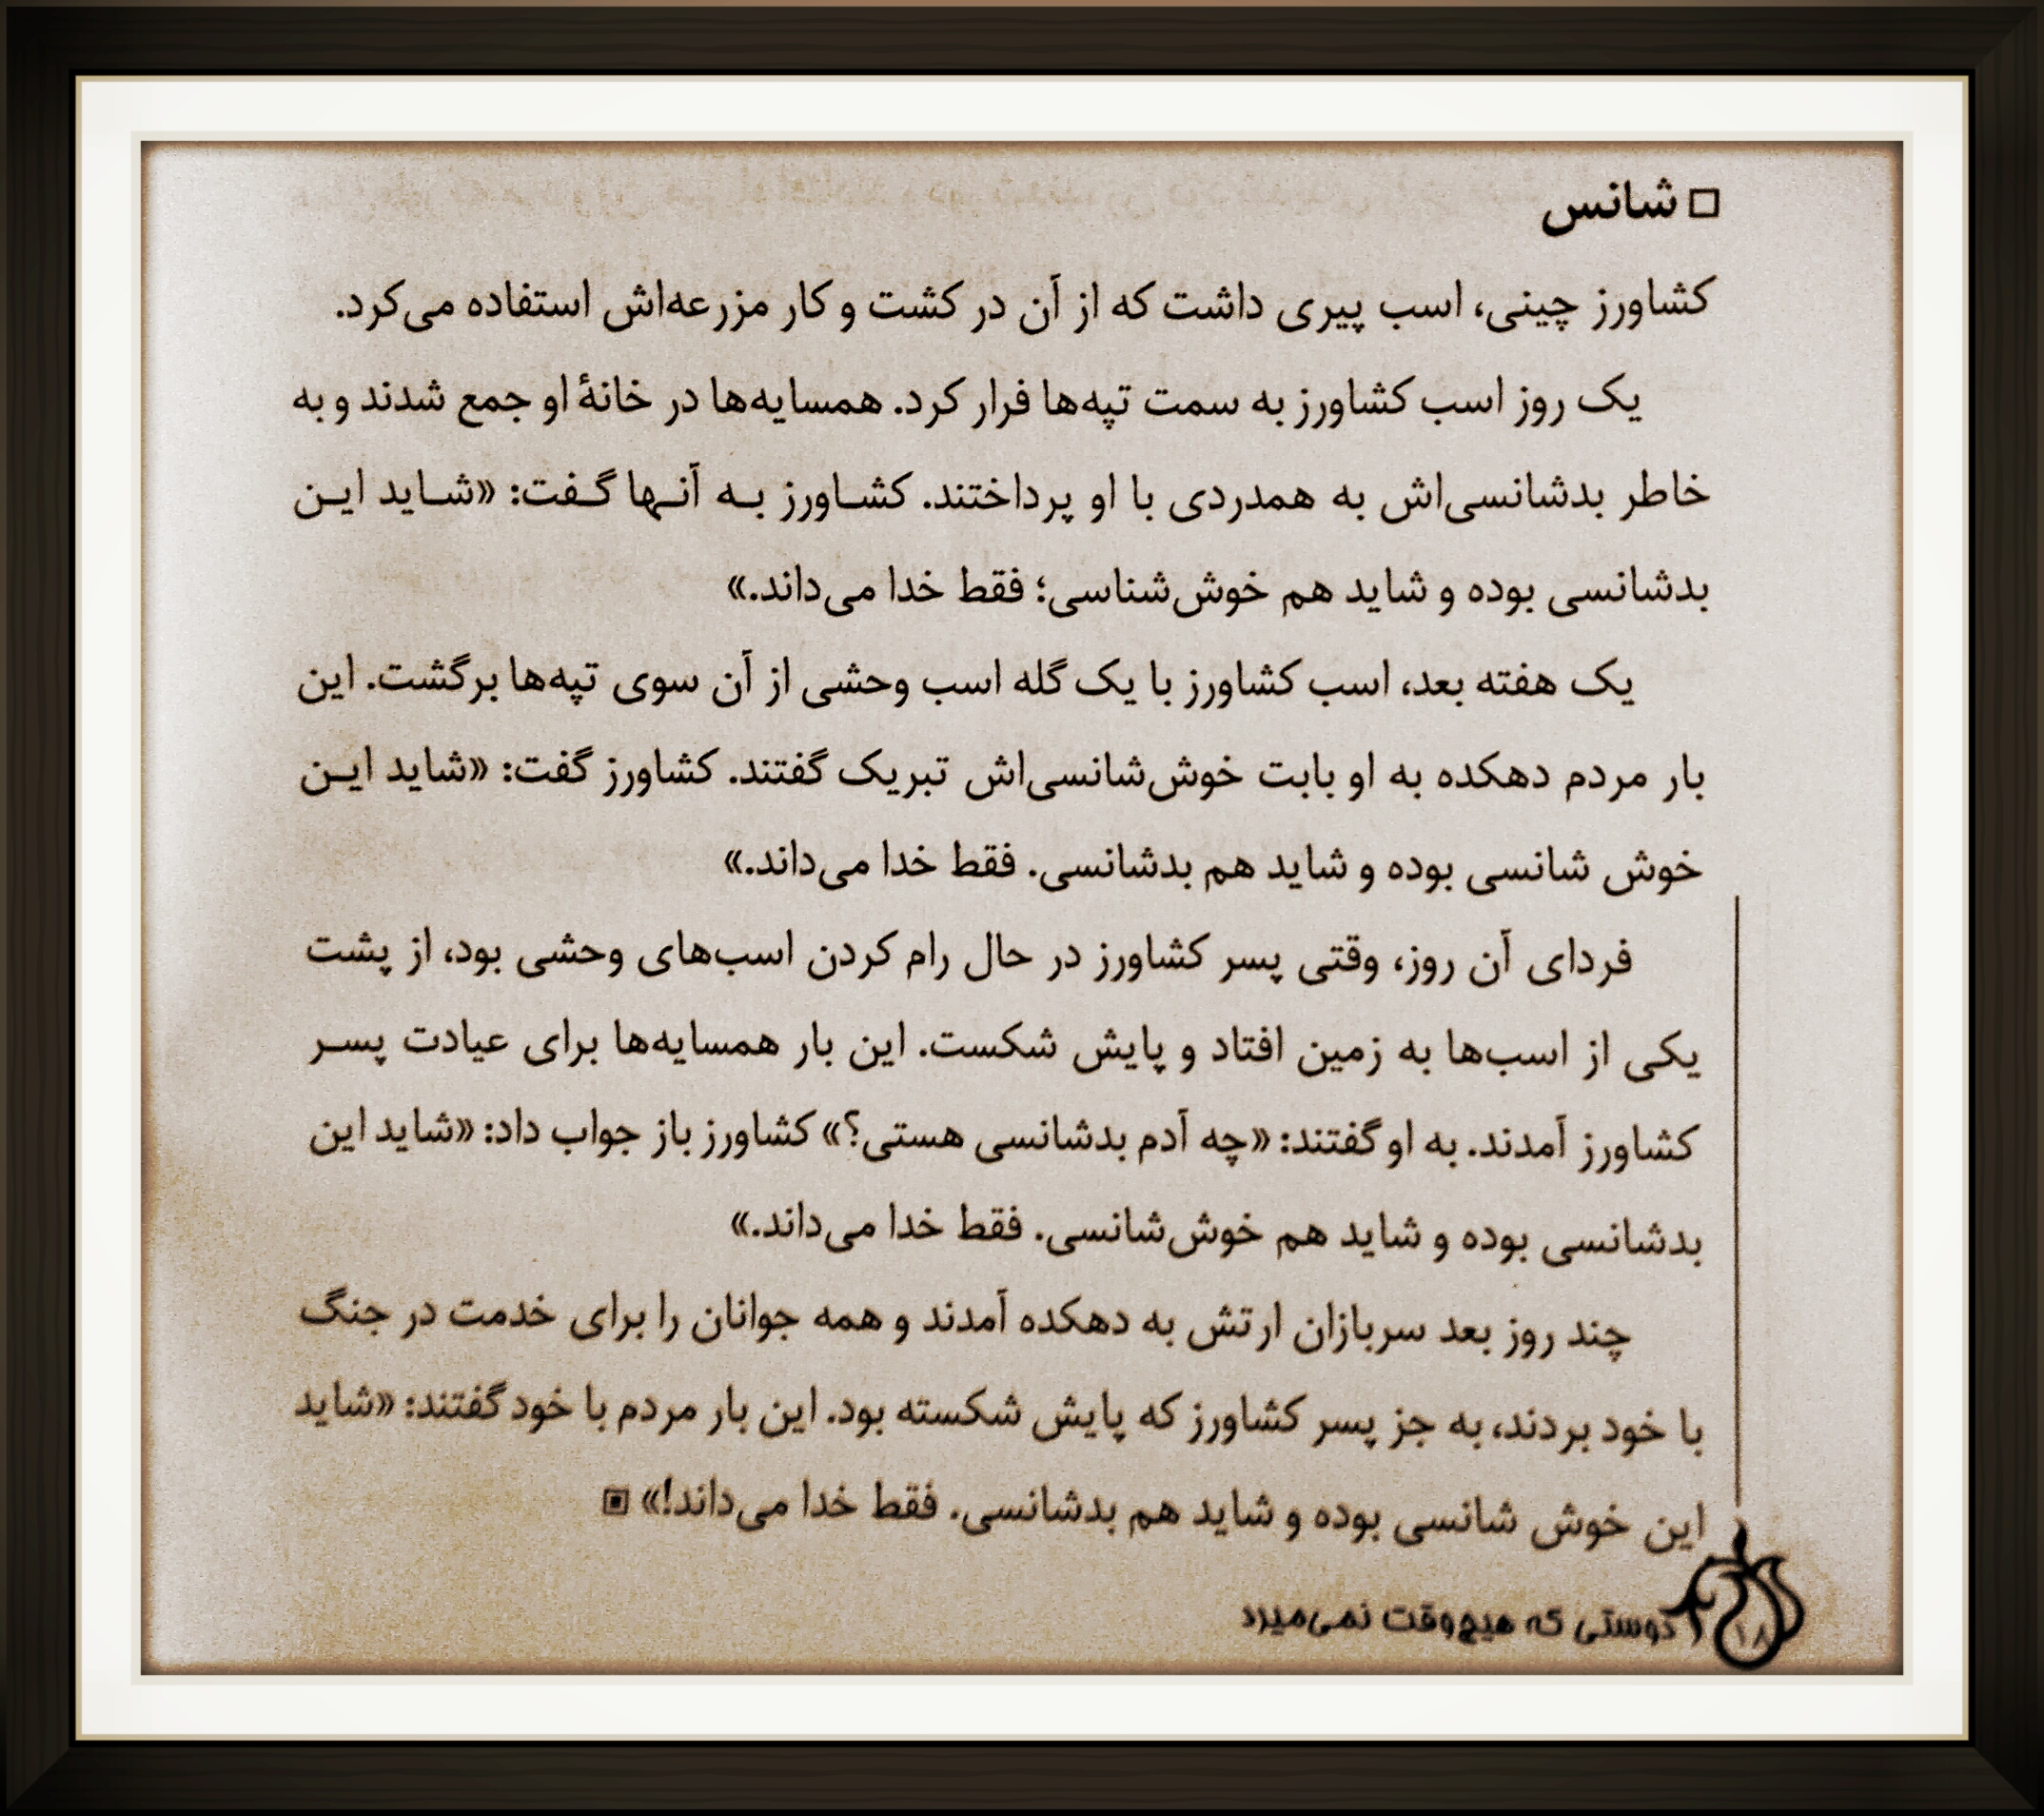 □ شانس
کشاورز چینی، اسب پیری داشت که از آن در کشت و کار مزرعه‌اش استفاده می‌کرد.
یک روز اسب کشاورز به سمت تپه‌ها فرار کرد. همسایه‌ها در خانهٔ او جمع شدند و به
خاطر بدشانسی‌اش به همدردی با او پرداختند. کشـاورز بـه آنـها گـفت: «شـاید ایـن
بدشانسی بوده و شاید هم خوش‌شناسی؛ فقط خدا می‌داند.»
یک هفته بعد، اسب کشاورز با یک گله اسب وحشی از آن سوی تپه‌ها برگشت. این
بار مردم دهکده به او بابت خوش‌شانسی‌اش تبریک گفتند. کشاورز گفت: «شاید ایـن
خوش شانسی بوده و شاید هم بدشانسی. فقط خدا می‌داند.»
فردای آن روز، وقتی پسر کشاورز در حال رام کردن اسب‌های وحشی بود، از پشت
یکی از اسب‌ها به زمین افتاد و پایش شکست. این بار همسایه‌ها برای عیادت پسـر
کشاورز آمدند. به او گفتند: «چه آدم بدشانسی هستی؟» کشاورز باز جواب داد: «شاید این
بدشانسی بوده و شاید هم خوش‌شانسی. فقط خدا می‌داند.»
چند روز بعد سربازان ارتش به دهکده آمدند و همه جوانان را برای خدمت در جنگ
با خود بردند، به جز پسر کشاورز که پایش شکسته بود. این بار مردم با خود گفتند: «شاید
این خوش شانسی بوده و شاید هم بدشانسی. فقط خدا می‌داند!» ▣
۱۸ دوستی که هیچ‌وقت نمی‌میرد